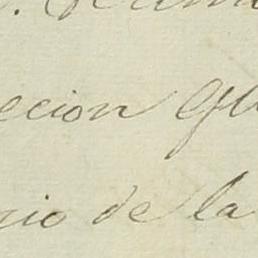 ecion Gl
rio de la